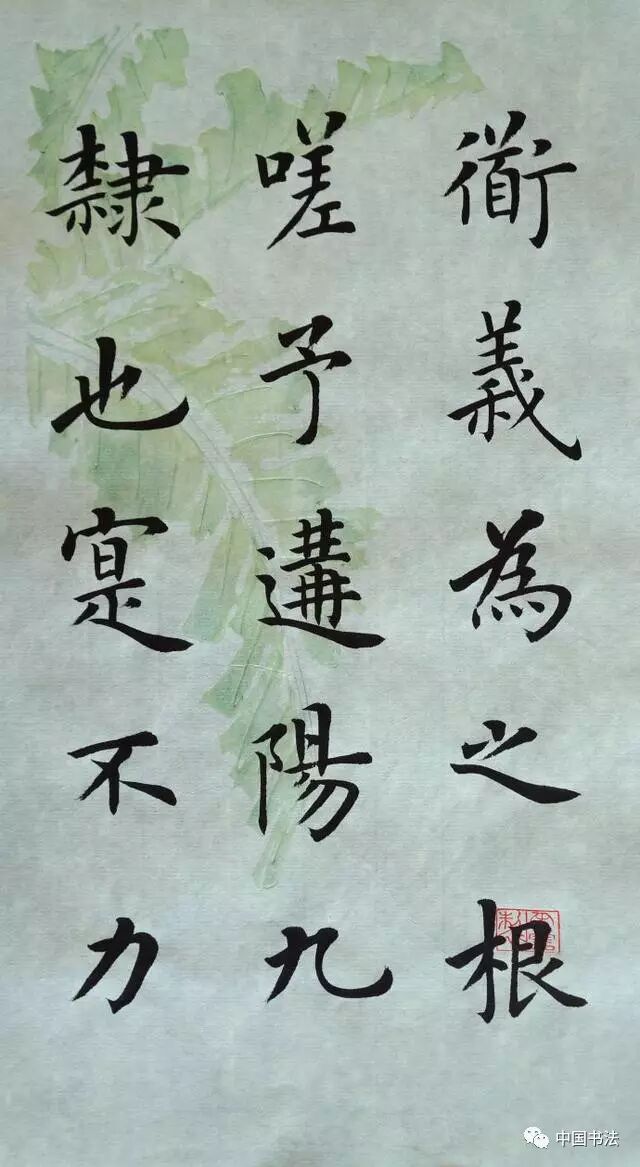 衜義為之根
嗟予遘陽九
隸也寔不力
中国书法